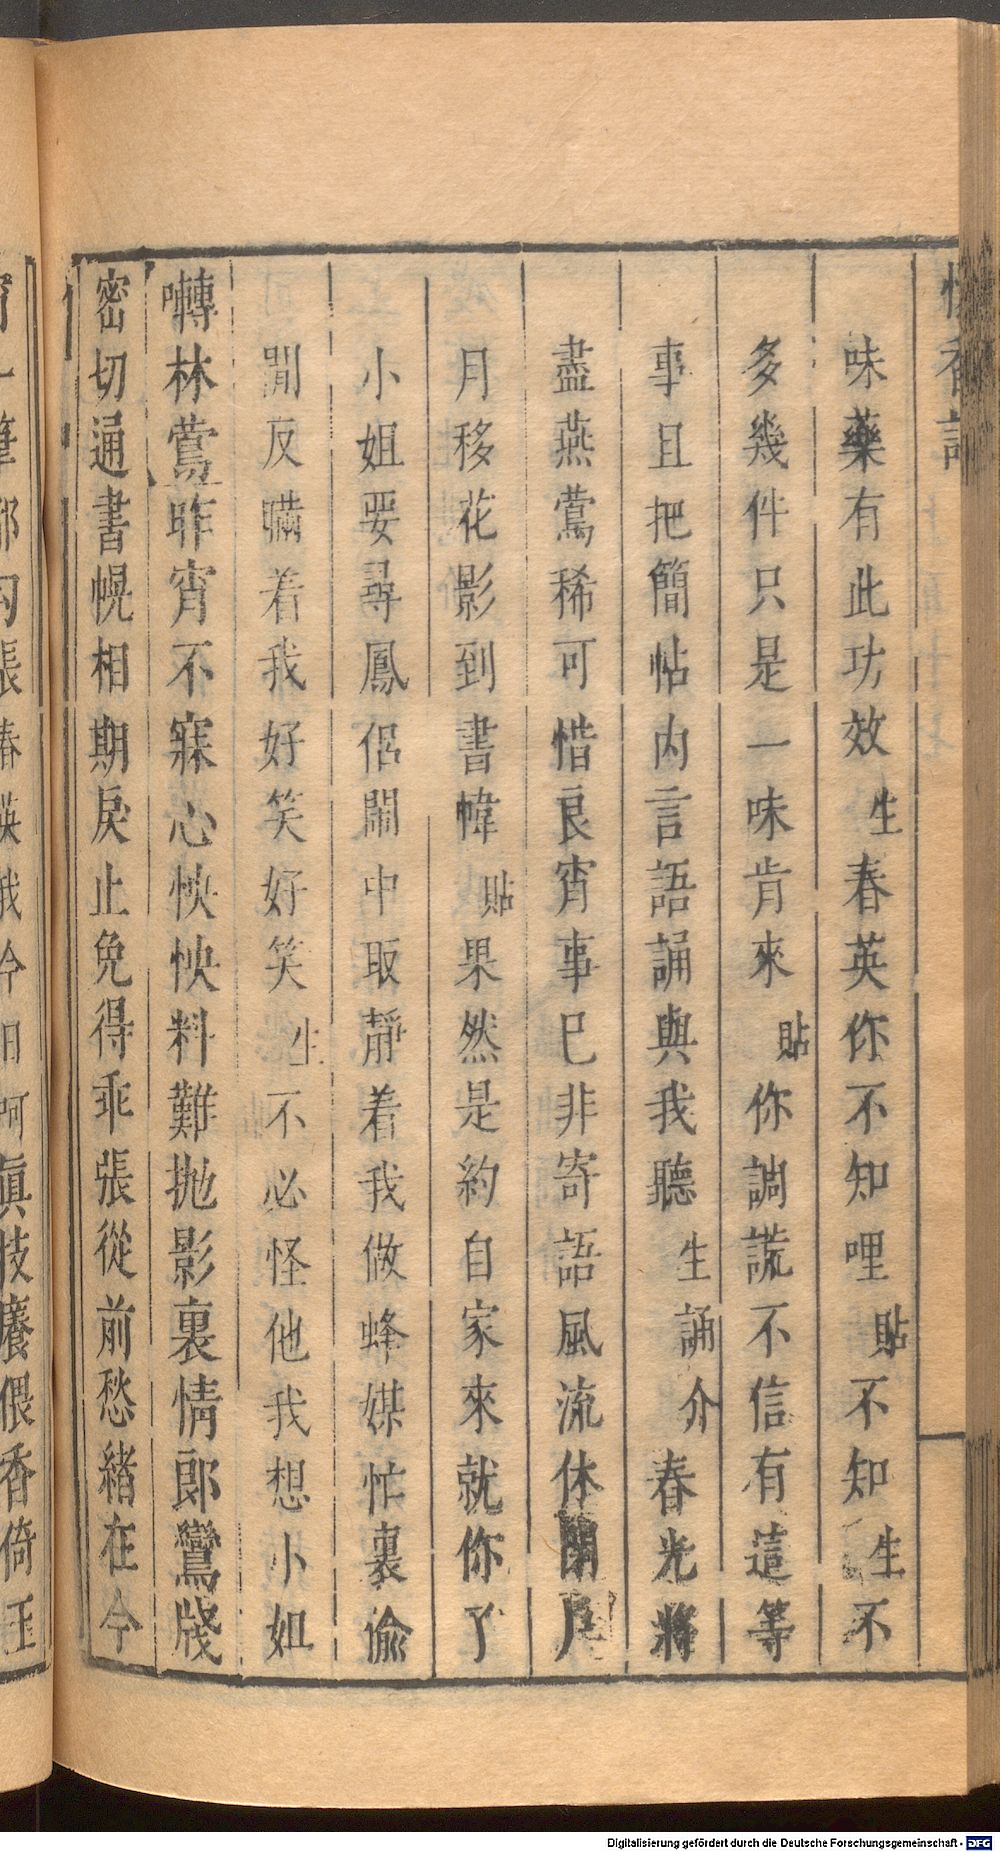 懷香記
味藥有此功效生春英你不知哩貼不知生不
多幾件只是一味肯來貼你調謊不信有這等
事且把簡帖内言語誦與我聽生誦介春光將
盡燕鶯稀可惜良宵事巳非寄語風流休閉戶
月移花影到書幃貼果然是約自家來就你了
小姐要尋鳳侶閙中取靜着我做蜂媒忙裏偷
閒反瞞着我好笑好笑生不必怪他我想小姐
囀林鶯昨宵不寐心怏怏料難抛影裏情郎鸞牋
密切通書幌相期戾止免得乖張從前愁緒在今
春英我今日呵真技癢偎香倚玉
Digitalisierung gefördert durch die Deutsche Forschungsgemeinschaft - DFG